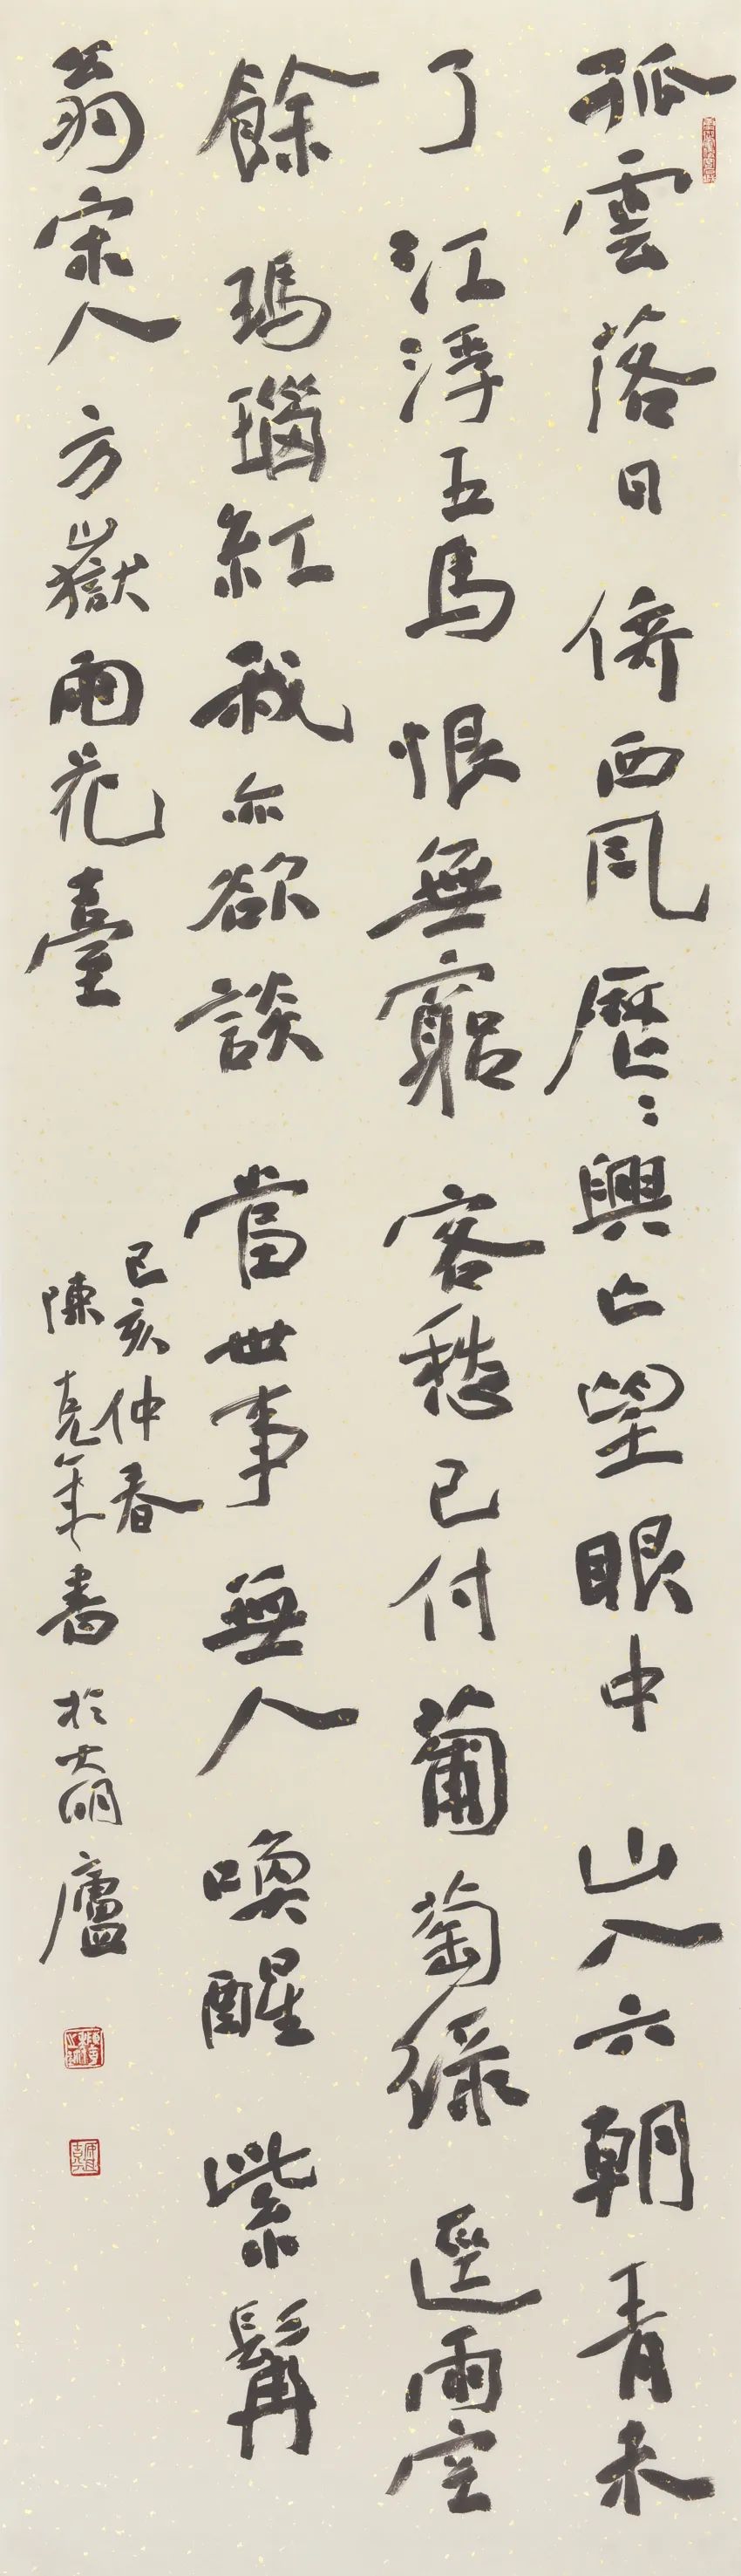 孤雲落日倚西風歷〻興亡望眼中山入六朝青未
了江浮五馬恨無窮客愁已付葡萄綠逕雨空
餘瑪瑙紅我亦欲談當世事無人喚醒紫髯
翁宋人方嶽雨花臺
己亥仲春
陳克年書於廬